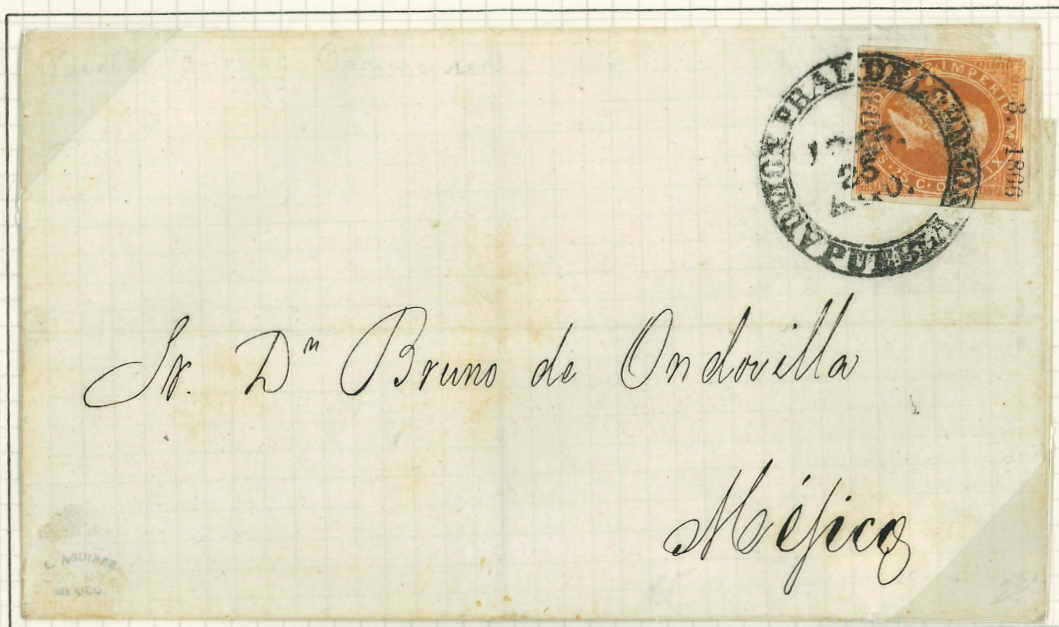 ADMON PRAL. DEL CORREO
PUEBLA
25
IMPERIO MEXI
25 C.
3. 1866
Sr. Dⁿ Bruno de Ondovilla
Méjico
E. AGUIRRE
MEXICO.